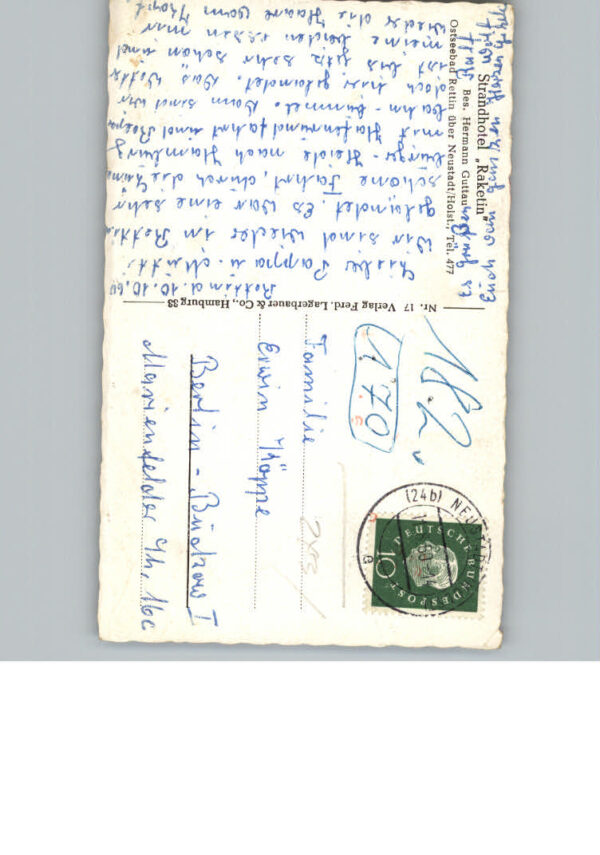 Strandhotel „Raketin"
Bes. Hermann Guttau
Ostseebad Rettin über Neustadt/Holst., Tel. 477
Rettin d. 10.10.60
Liebe Pappa u. Mutti
Wir sind wieder in Rettin
gelandet. Es war eine sehr
schöne Fahrt, durch die Lüne
burger-Heide nach Hamburg
mit Hafenrundfahrt und Reeper
bahn-bummel. Dann sind wir
doch hier gelandet. Das Wetter
ist bis jetz sehr schön und
meine beiden essen mir
wieder die Haare vom Kopf.
Es grüßen
Euch vom ganzen Herzen
Nr. 17 Verlag Ferd. Lagerbauer & Co., Hamburg 33
182
170
Familie
Erwin Köppe
Berlin-Buckow I
Marienfelder Ch. 16c
(24b) NEUSTADT
DEUTSCHE BUNDESPOST
10